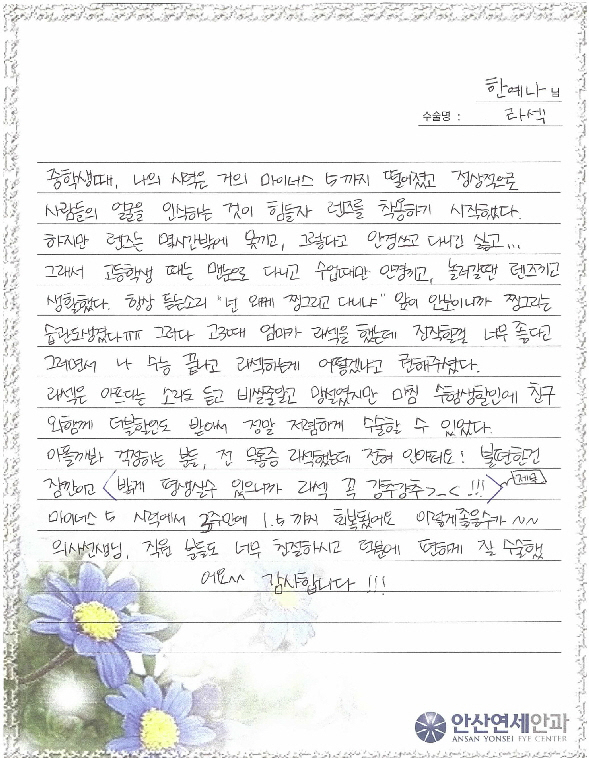 한예나 님
수술명 : 라섹
중학생때, 나의 시력은 거의 마이너스 5까지 떨어졌고 정상적으로
사람들의 얼굴을 인식하는 것이 힘들자 렌즈를 착용하기 시작했다.
하지만 렌즈는 몇시간밖에 못끼고, 그렇다고 안경쓰고 다니긴 싫고...
그래서 고등학생 때는 맨눈으로 다니고 수업때만 안경끼고, 놀러갈땐 렌즈끼고
생활했다. 항상 듣는소리 "넌 왜케 찡그리고 다니냐" 앞이 안보이니까 찡그리는
습관도생겼다ㅠㅠ 그러다 고3때 엄마가 라섹을 했는데 진작할껄 너무 좋다고
그러면서 나 수능 끝나고 라섹하는게 어떻겠냐고 권해주셨다.
라섹은 아프다는 소리도 듣고 비쌀줄알고 망설였지만 마침 수험생할인에 친구
와함께 더블할인도 받아서 정말 저렴하게 수술할 수 있었다.
아플까봐 걱정하는 분들, 전 무통증 라섹했는데 전혀 안아파요! 불편한건
잠깐이고 <밝게 평생살수 있으니까 라섹 꼭 강추강추>_< !!!> 제목
마이너스 5 시력에서 3주만에 1.5 까지 회복됐어요 이렇게좋을수가 ~~
의사선생님, 직원 분들도 너무 친절하시고 덕분에 편하게 잘 수술했
어요^^ 감사합니다 !!!
안산연세안과
ANSAN YONSEI EYE CENTER